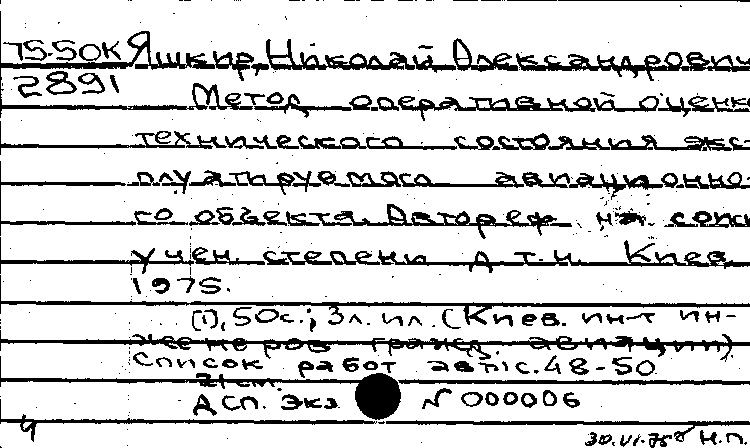 75-50К Яшкир, Николай Александрович
2891
Метод оперативной оценк
технического состояния экс-
плуатируемого авиационно-
го объекта. Автореф. на соиск
учен. степени д. т. н. Киев,
1975.
(1), 50с.; 3л. ил. (Киев. ин-т ин-
женеров гражд. авиации)
Список работ авт: с. 48-50
21 см.
ДСП. Экз № 000006
ч
30.VI.75г Н.П.